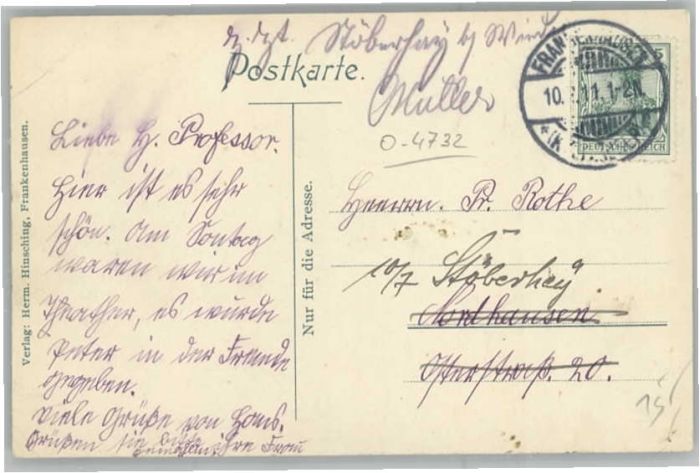 z. Zt. Stöberhay b/ Wied
Postkarte.
Müller
0-4732
FRANKENHAUSEN
10. 11. 1-2N.
* (KYFFH.)
5
DEUTSCHES REICH
Liebe H. Professor.
Hier ist es sehr
schön. Am Sontag
waren wir im
Theather, es wurde
Peter in der Fremde
gegeben.
Viele Grüße von Hans.
Grüßen sie bitte
ihre Frau
Verlag: Herm. Hinsching, Frankenhausen.
Nur für die Adresse.
Heerrn. Pr. Rothe
10/7 Stöberhey
Nordhausen
Osterstraß. 20.
15